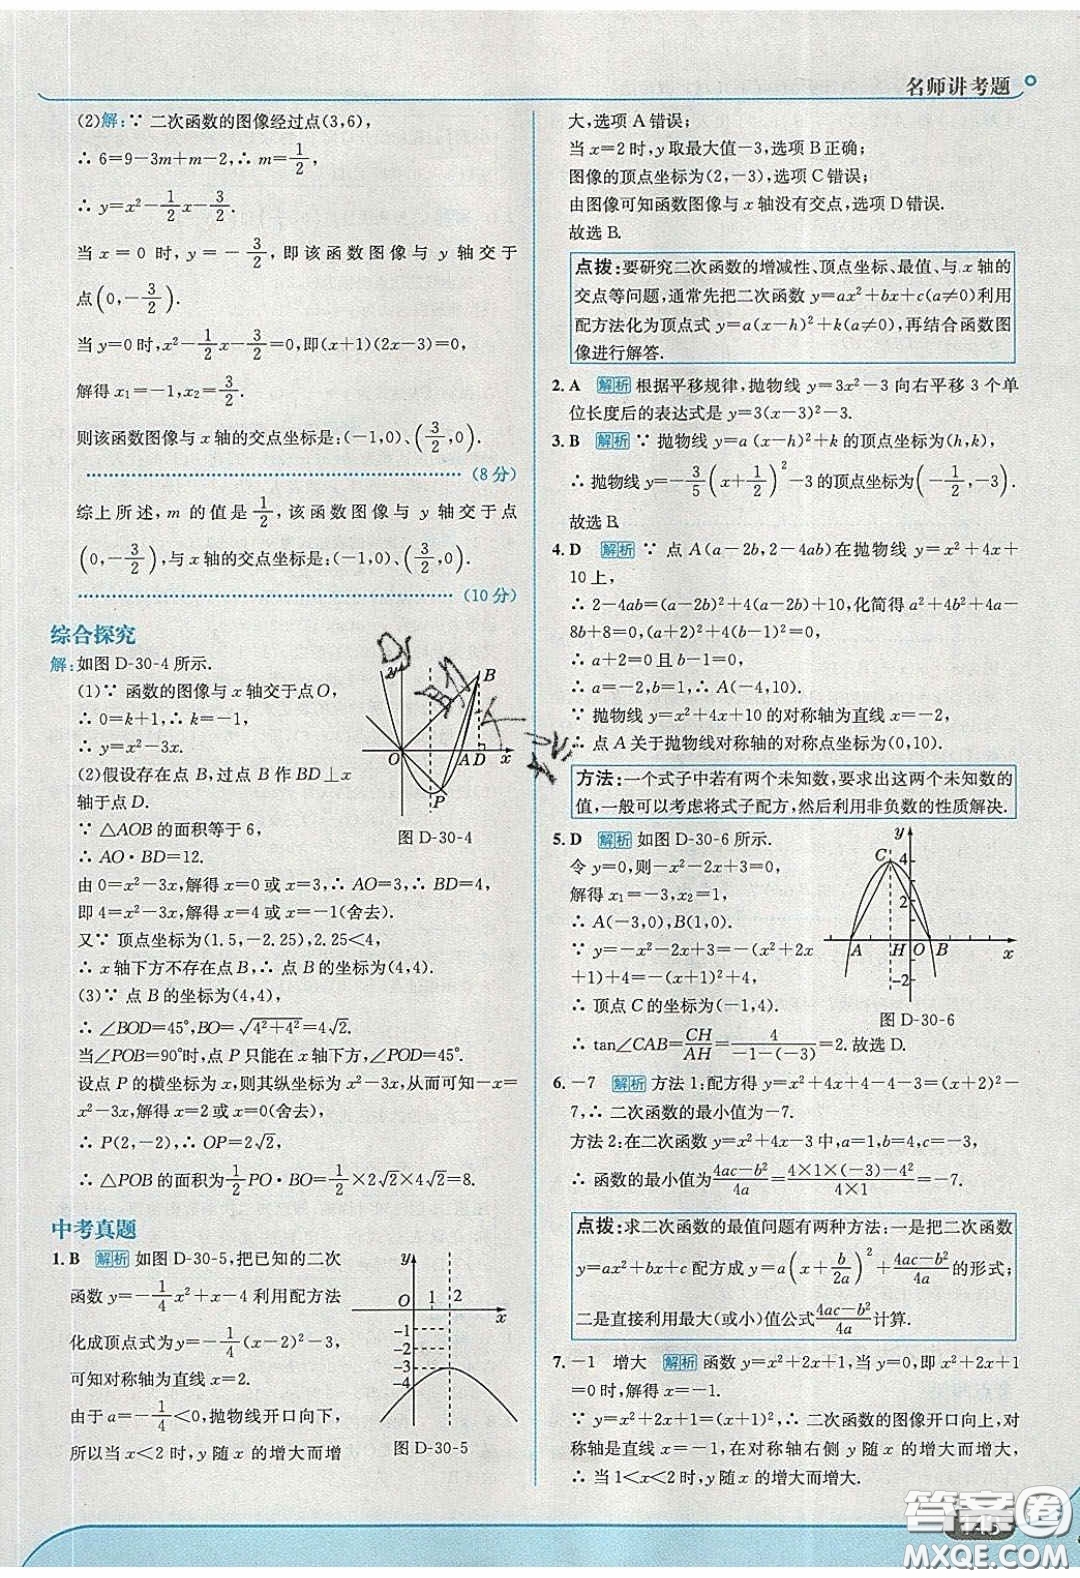 名师讲考题
(2)解:∵ 二次函数的图像经过点(3,6),
∴ 6=9-3m+m-2,∴ m=1/2,
∴ y=x²-1/2x-3/2.
当 x=0 时,y=-3/2,即该函数图像与 y 轴交于
点(0,-3/2).
当y=0时,x²-1/2x-3/2=0,即(x+1)(2x-3)=0,
解得 x₁=-1,x₂=3/2.
则该函数图像与x轴的交点坐标是:(-1,0)、(3/2,0).
(8分)
综上所述,m 的值是1/2,该函数图像与 y 轴交于点
(0,-3/2),与 x 轴的交点坐标是:(-1,0)、(3/2,0).
(10分)
综合探究
解:如图 D-30-4 所示.
(1)∵ 函数的图像与 x 轴交于点O,
∴ 0=k+1,∴ k=-1,
∴ y=x²-3x.
(2)假设存在点 B,过点 B 作 BD⊥x
轴于点 D.
∵ △AOB 的面积等于 6,
∴ AO·BD=12.
由 0=x²-3x,解得 x=0 或x=3,∴ AO=3,∴ BD=4,
即 4=x²-3x,解得 x=4 或 x=-1(舍去).
又∵ 顶点坐标为(1.5,-2.25),2.25<4,
∴ x轴下方不存在点 B,∴ 点 B 的坐标为(4,4).
(3)∵ 点 B 的坐标为(4,4),
∴ ∠BOD=45°,BO=√4²+4²=4√2.
当∠POB=90°时,点 P 只能在 x 轴下方,∠POD=45°.
设点 P 的横坐标为 x,则其纵坐标为 x²-3x,从而可知-x=
x²-3x,解得 x=2 或 x=0(舍去),
∴ P(2,-2),∴ OP=2√2,
∴ △POB 的面积为1/2PO·BO=1/2×2√2×4√2=8.
y
B
O
A
D
x
P
图 D-30-4
中考真题
1. B 解析 如图 D-30-5,把已知的二次
函数 y=-1/4x²+x-4 利用配方法
化成顶点式为y=-1/4(x-2)²-3,
可知对称轴为直线 x=2.
由于 a=-1/4<0,抛物线开口向下,
所以当 x<2 时,y 随 x 的增大而增
y
O
1
2
x
-1
-2
-3
-4
图 D-30-5
大,选项 A 错误;
当 x=2时,y取最大值-3,选项 B正确;
图像的顶点坐标为(2,-3),选项 C 错误;
由图像可知函数图像与 x 轴没有交点,选项 D错误.
故选 B.
点拨:要研究二次函数的增减性、顶点坐标、最值、与 x 轴的
交点等问题,通常先把二次函数 y=ax²+bx+c(a≠0)利用
配方法化为顶点式 y=a(x-h)²+k(a≠0),再结合函数图
像进行解答.
2. A 解析 根据平移规律,抛物线 y=3x²-3 向右平移 3 个单
位长度后的表达式是 y=3(x-3)²-3.
3. B 解析 ∵ 抛物线 y=a (x-h)²+k 的顶点坐标为(h,k),
∴ 抛物线 y=-3/5(x+1/2)²-3的顶点坐标为(-1/2,-3).
故选 B.
4. D 解析 ∵ 点 A(a-2b,2-4ab)在抛物线 y=x²+4x+
10上,
∴ 2-4ab=(a-2b)²+4(a-2b)+10,化简得 a²+4b²+4a-
8b+8=0,(a+2)²+4(b-1)²=0,
∴ a+2=0且 b-1=0,
∴ a=-2,b=1,∴ A(-4,10).
∵ 抛物线 y=x²+4x+10 的对称轴为直线 x=-2,
∴ 点 A 关于抛物线对称轴的对称点坐标为(0,10).
方法:一个式子中若有两个未知数,要求出这两个未知数的
值,一般可以考虑将式子配方,然后利用非负数的性质解决.
5. D 解析 如图 D-30-6所示.
令 y=0,则-x²-2x+3=0,
解得 x₁=-3,x₂=1,
∴ A(-3,0),B(1,0).
∵ y=-x²-2x+3=-(x²+2x
+1)+4=-(x+1)²+4,
∴ 顶点 C 的坐标为(-1,4).
∴ tan∠CAB=CH/AH=4/-1-(-3)=2.故选 D.
y
C
4
2
A
H
O
B
x
-2
图 D-30-6
6. -7 解析 方法1:配方得 y=x²+4x+4-4-3=(x+2)²-
7,∴ 二次函数的最小值为-7.
方法2:在二次函数 y=x²+4x-3 中,a=1,b=4,c=-3,
∴ 函数的最小值为4ac-b²/4a=4×1×(-3)-4²/4×1=-7.
点拨:求二次函数的最值问题有两种方法:一是把二次函数
y=ax²+bx+c 配方成 y=a(x+b/2a)²+4ac-b²/4a的形式;
二是直接利用最大(或小)值公式4ac-b²/4a计算.
7. -1 增大 解析 函数 y=x²+2x+1,当 y=0,即 x²+2x+1
=0时,解得 x=-1.
∵ y=x²+2x+1=(x+1)²,∴ 二次函数的图像开口向上,对
称轴是直线 x=-1,在对称轴右侧 y 随 x 的增大而增大,
∴ 当 1<x<2时,y随 x 的增大而增大.
145
答案圈
MXQE.COM